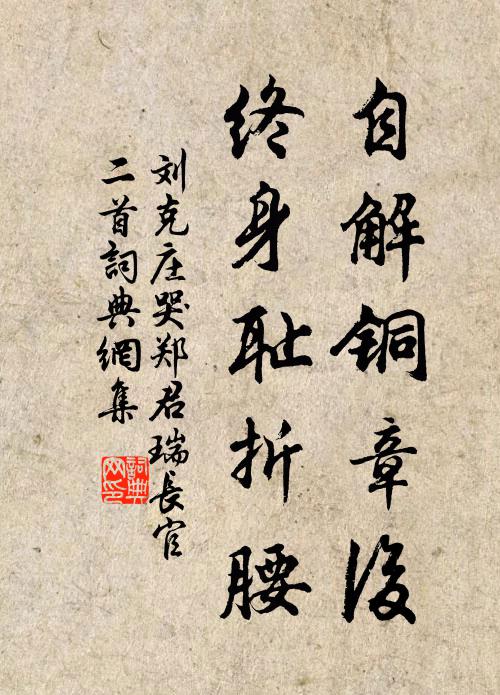 自解铜章後
终身耻折腰
刘克庄哭郑君瑞長官
二首詞典網集
詞典
网印